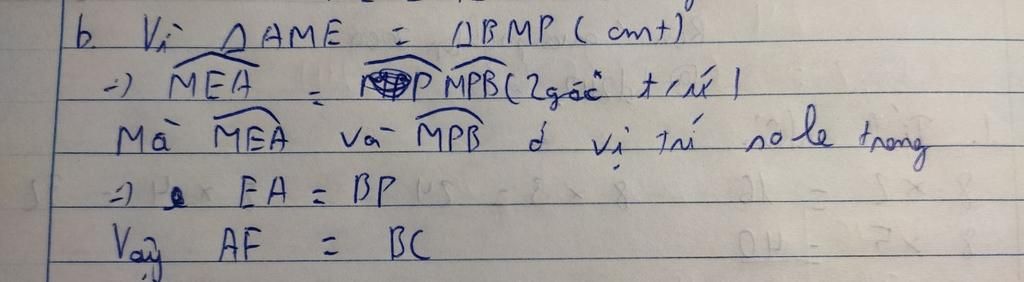 b. Vì ΔAME = ΔBMP (cmt)
=) MEA = MPB (2 góc t/ứ)
Mà MEA và MPB ở vị trí so le trong
=) EA = BP
Vậy AF = BC